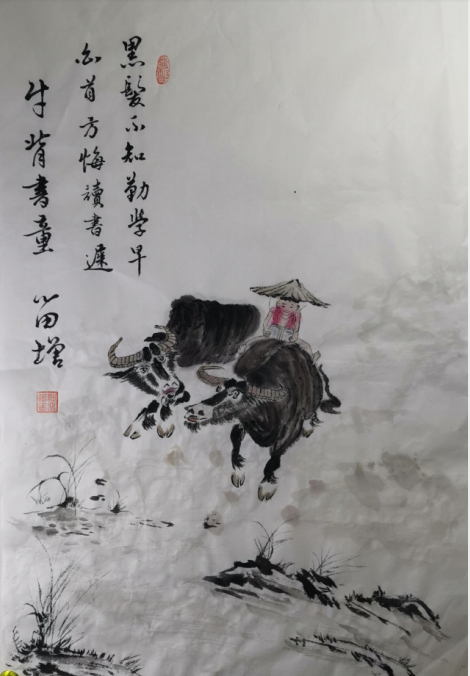 黑髮不知勤學早
白首方悔讀書遲
牛背書童